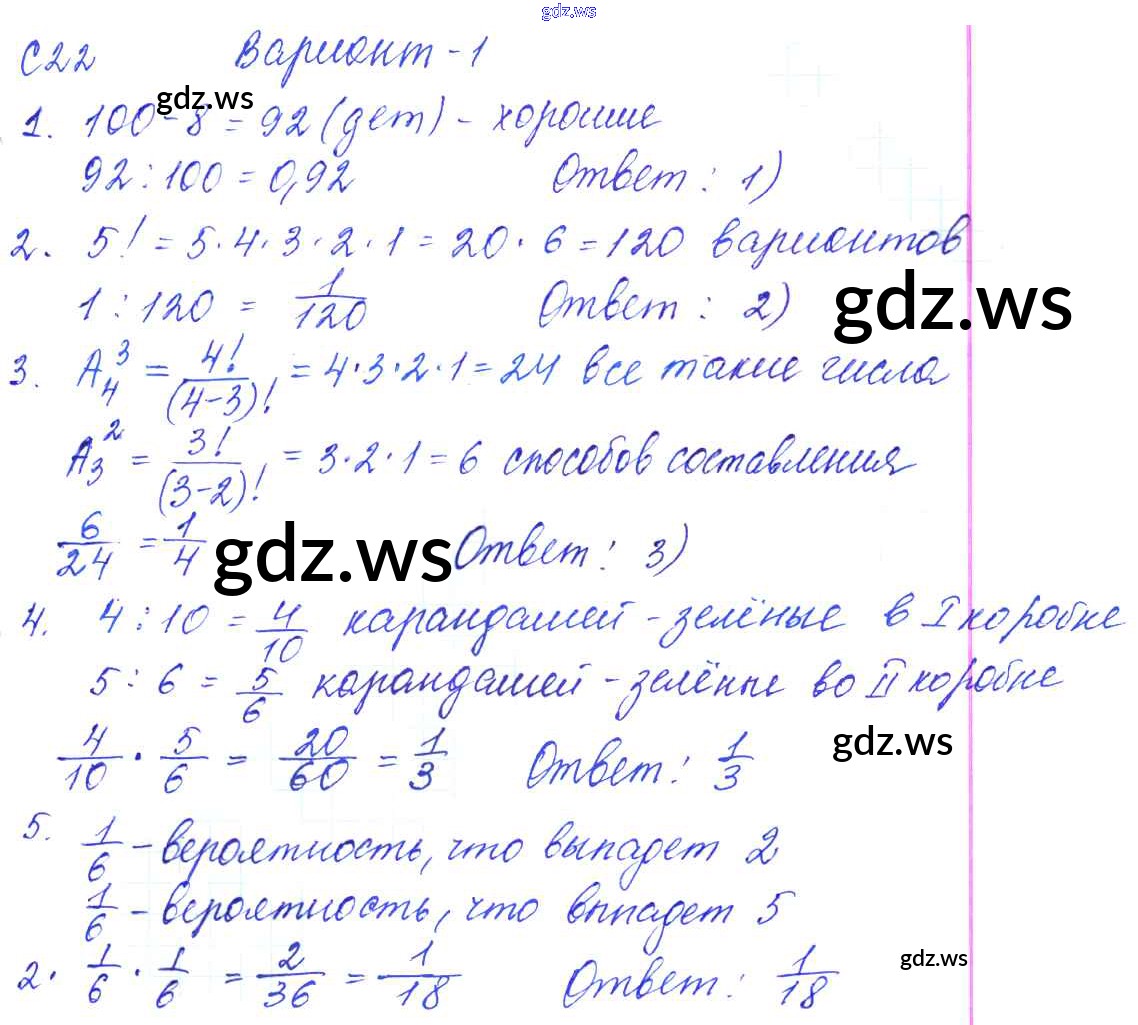 gdz.ws
С22 Вариант-1
gdz.ws
1. 100-8=92(дет)- хорошие
92:100=0,92 Ответ: 1)
2. 5!=5·4·3·2·1=20·6=120 вариантов
1:120 = 1/120 Ответ: 2) gdz.ws
3. A₄³ = 4!/(4-3)! = 4·3·2·1=24 все такие числа
A₃² = 3!/(3-2)! = 3·2·1=6 способов составления
6/24 = 1/4 gdz.ws Ответ: 3)
4. 4:10 = 4/10 карандашей -зелёные в I коробке
5:6 = 5/6 карандашей -зелёные во II коробке
gdz.ws
4/10 · 5/6 = 20/60 = 1/3 Ответ: 1/3
5. 1/6 -вероятность, что выпадет 2
1/6 -вероятность, что выпадет 5
2· 1/6 · 1/6 = 2/36 = 1/18 Ответ: 1/18 gdz.ws